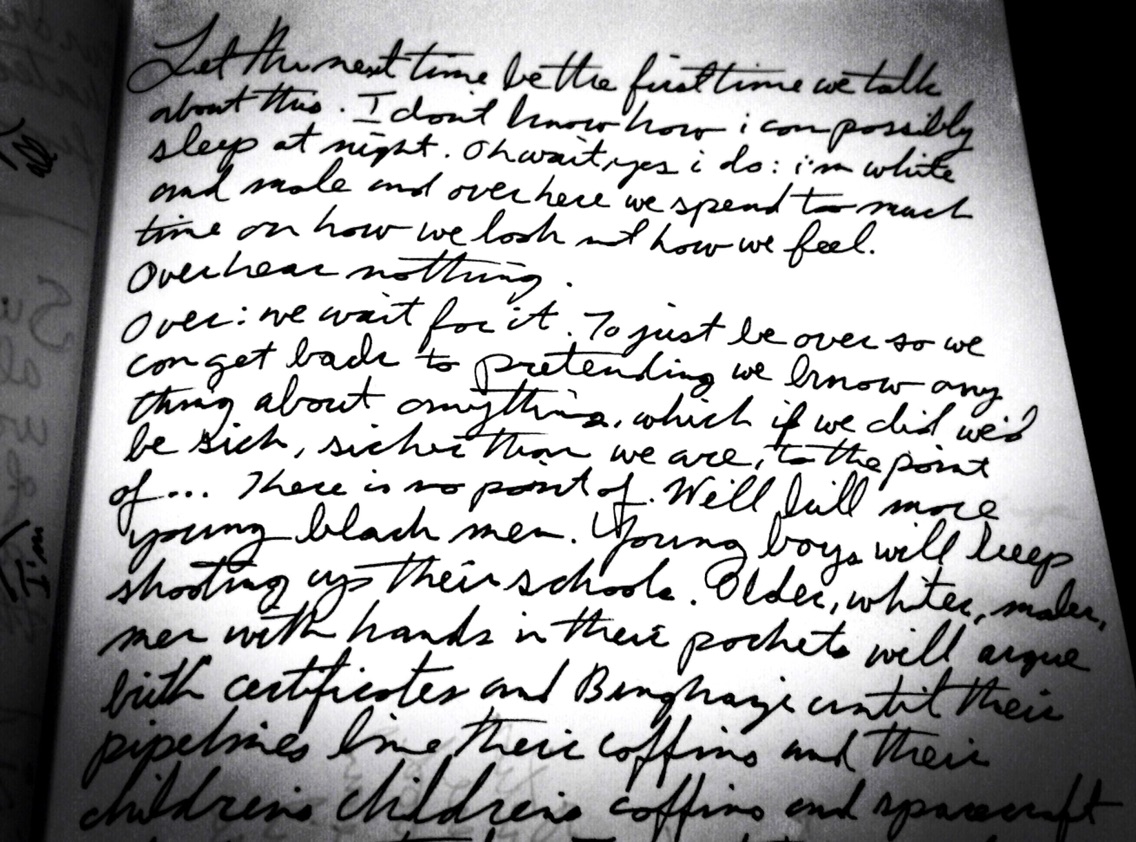 Let the next time be the first time we talk
about this. I don't know how i can possibly
sleep at night. Oh wait, yes i do: i'm white
and male and over here we spend to much
time on how we look not how we feel.
Overhear nothing.
Over: we wait for it. To just be over so we
can get back to pretending we know any
thing about anything, which if we did we'd
be sick, sicker than we are, to the point
of... There is no point of. We'll kill more
young black men. Young boys will keep
shooting up their schools. Older, whiter, maler,
men with hands in their pockets will argue
birth certificates and Benghazi until their
pipelines line their coffins and their
children's children's coffins and spacecraft